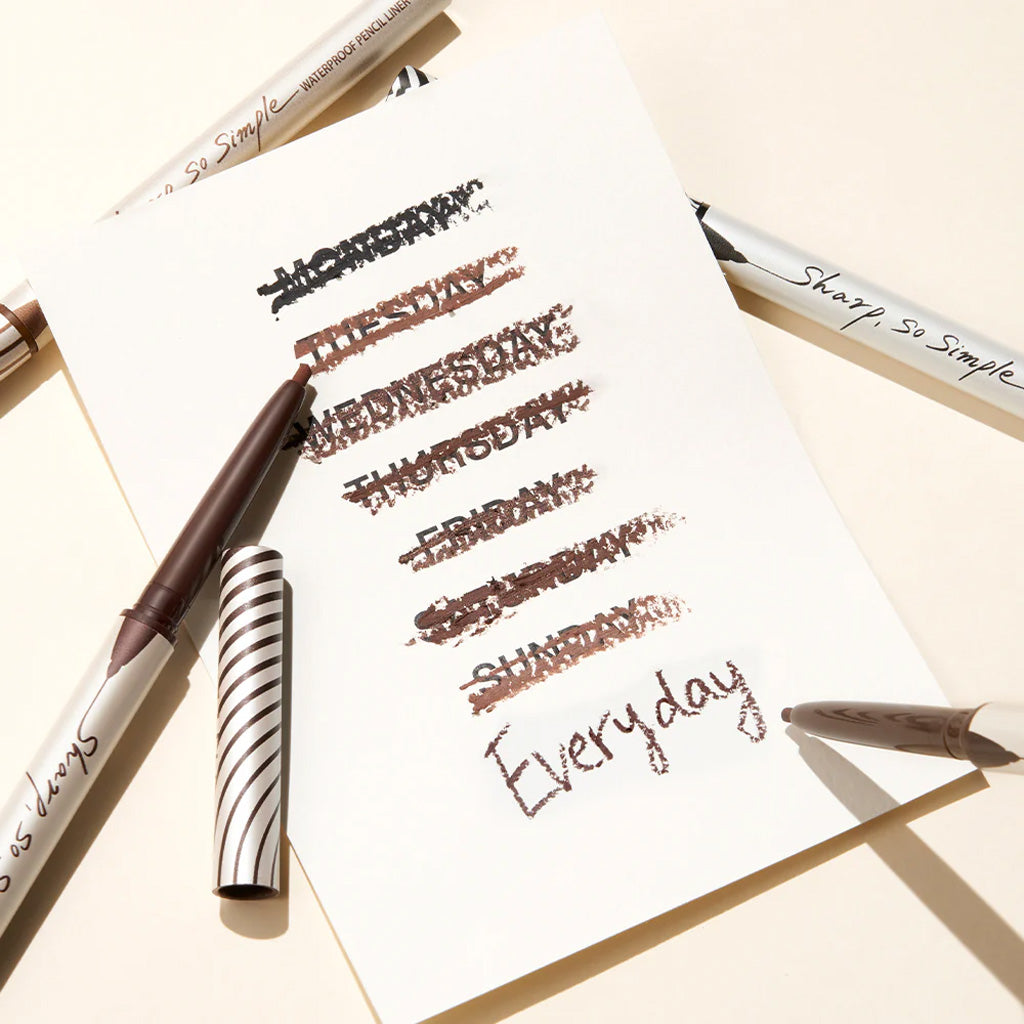 So Simple WATERPROOF PENCIL LINER
MONDAY
TUESDAY
WEDNESDAY
THURSDAY
FRIDAY
SATURDAY
SUNDAY
Everyday
Sharp, So Simple
Sharp, So